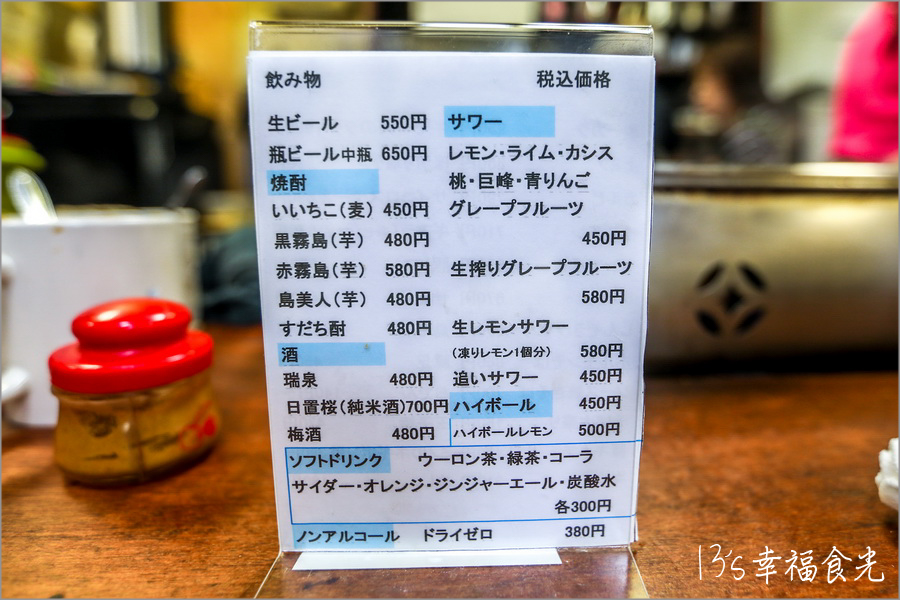 飲み物 税込価格
生ビール 550円
瓶ビール中瓶 650円
焼酎
いいちこ(麦) 450円
黒霧島(芋) 480円
赤霧島(芋) 580円
島美人(芋) 480円
すだち酎 480円
酒
瑞泉 480円
日置桜(純米酒)700円
梅酒 480円
サワー
レモン・ライム・カシス
桃・巨峰・青りんご
グレープフルーツ
450円
生搾りグレープフルーツ
580円
生レモンサワー
(凍りレモン1個分) 580円
追いサワー 450円
ハイボール 450円
ハイボールレモン 500円
ソフトドリンク ウーロン茶・緑茶・コーラ
サイダー・オレンジ・ジンジャーエール・炭酸水
各300円
ノンアルコール ドライゼロ 380円
13's幸福食光